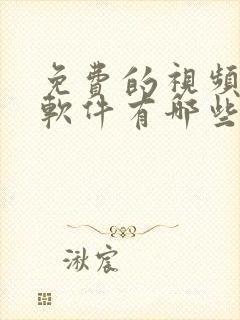 免費的視頻
軟件有哪些
湫宸